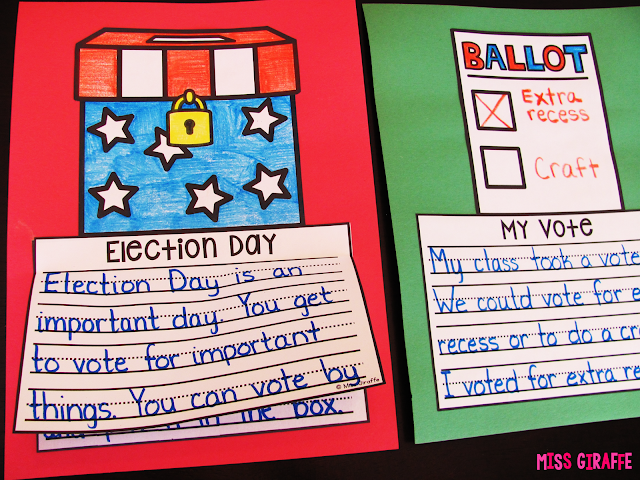 Election Day
Election Day is an
important day. You get
to vote for important
things. You can vote by
© Miss Giraffe
in the box.
BALLOT
Extra
recess
Craft
My Vote
My class took a vote
We could vote for
recess or to do a
I voted for extra
MISS GIRAFFE